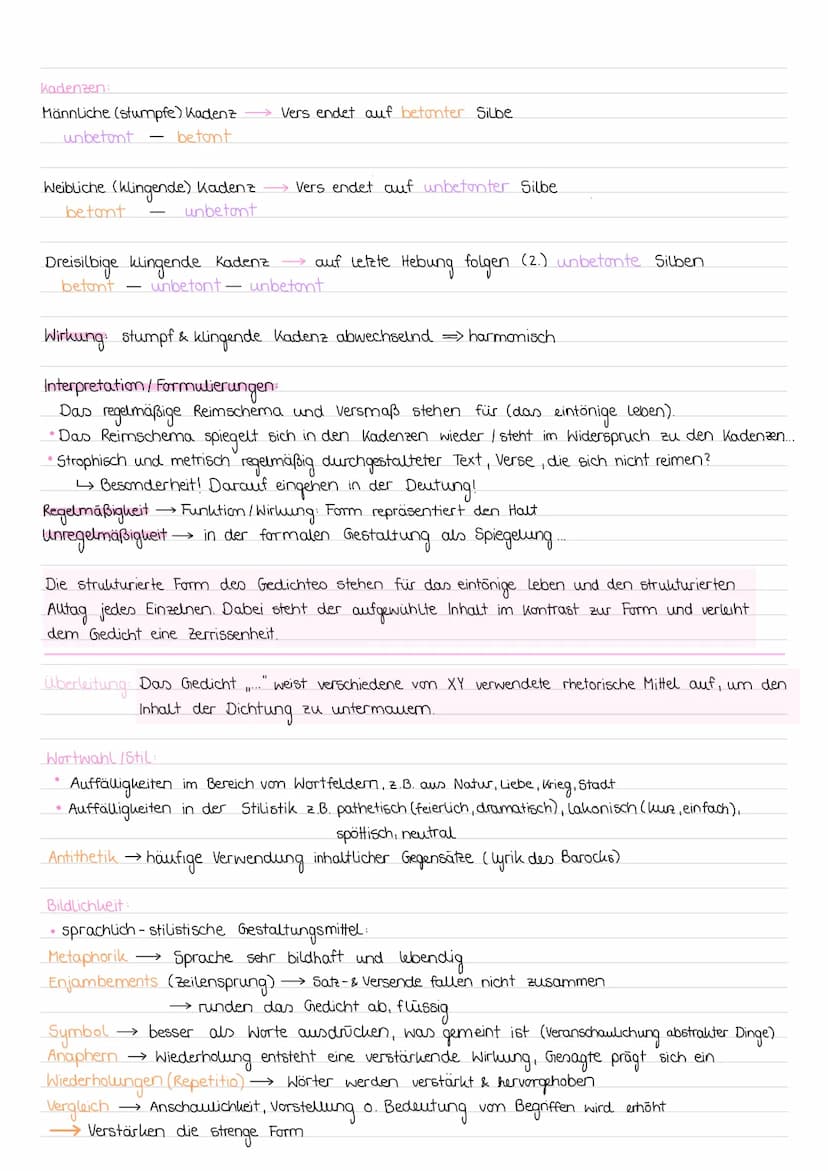 Kadenzen:
Männliche (stumpfe) Kadenz → Vers endet auf betonter Silbe
unbetont — betont
Weibliche (klingende) Kadenz → Vers endet auf unbetonter Silbe
betont — unbetont
Dreisilbige klingende Kadenz → auf letzte Hebung folgen (2.) unbetonte Silben
betont — unbetont — unbetont
Wirkung: stumpf & klingende Kadenz abwechselnd ⇒ harmonisch
Interpretation / Formulierungen:
Das regelmäßige Reimschema und Versmaß stehen für (das eintönige Leben).
• Das Reimschema spiegelt sich in den Kadenzen wieder / steht im Widerspruch zu den Kadenzen...
• Strophisch und metrisch regelmäßig durchgestalteter Text, Verse, die sich nicht reimen?
↳ Besonderheit! Darauf eingehen in der Deutung!
Regelmäßigkeit → Funktion / Wirkung: Form repräsentiert den Halt
Unregelmäßigkeit → in der formalen Gestaltung als Spiegelung ...
Die strukturierte Form des Gedichtes stehen für das eintönige Leben und den strukturierten
Alltag jedes Einzelnen. Dabei steht der aufgewühlte Inhalt im Kontrast zur Form und verleiht
dem Gedicht eine Zerrissenheit.
Überleitung: Das Gedicht „..." weist verschiedene von XY verwendete rhetorische Mittel auf, um den
Inhalt der Dichtung zu untermauern.
Wortwahl / Stil:
• Auffälligkeiten im Bereich von Wortfeldern, z.B. aus Natur, Liebe, Krieg, Stadt
• Auffälligkeiten in der Stilistik z.B. pathetisch (feierlich, dramatisch), lakonisch (kurz, einfach),
spöttisch, neutral
Antithetik → häufige Verwendung inhaltlicher Gegensätze (Lyrik des Barocks)
Bildlichkeit:
• sprachlich-stilistische Gestaltungsmittel:
Metaphorik → Sprache sehr bildhaft und lebendig
Enjambements (Zeilensprung) → Satz- & Versende fallen nicht zusammen
→ runden das Gedicht ab, flüssig
Symbol → besser als Worte ausdrücken, was gemeint ist (Veranschaulichung abstrakter Dinge)
Anaphern → Wiederholung entsteht eine verstärkende Wirkung, Gesagte prägt sich ein
Wiederholungen (Repetitio) → Wörter werden verstärkt & hervorgehoben
Vergleich → Anschaulichkeit, Vorstellung o. Bedeutung von Begriffen wird erhöht
→ Verstärken die strenge Form